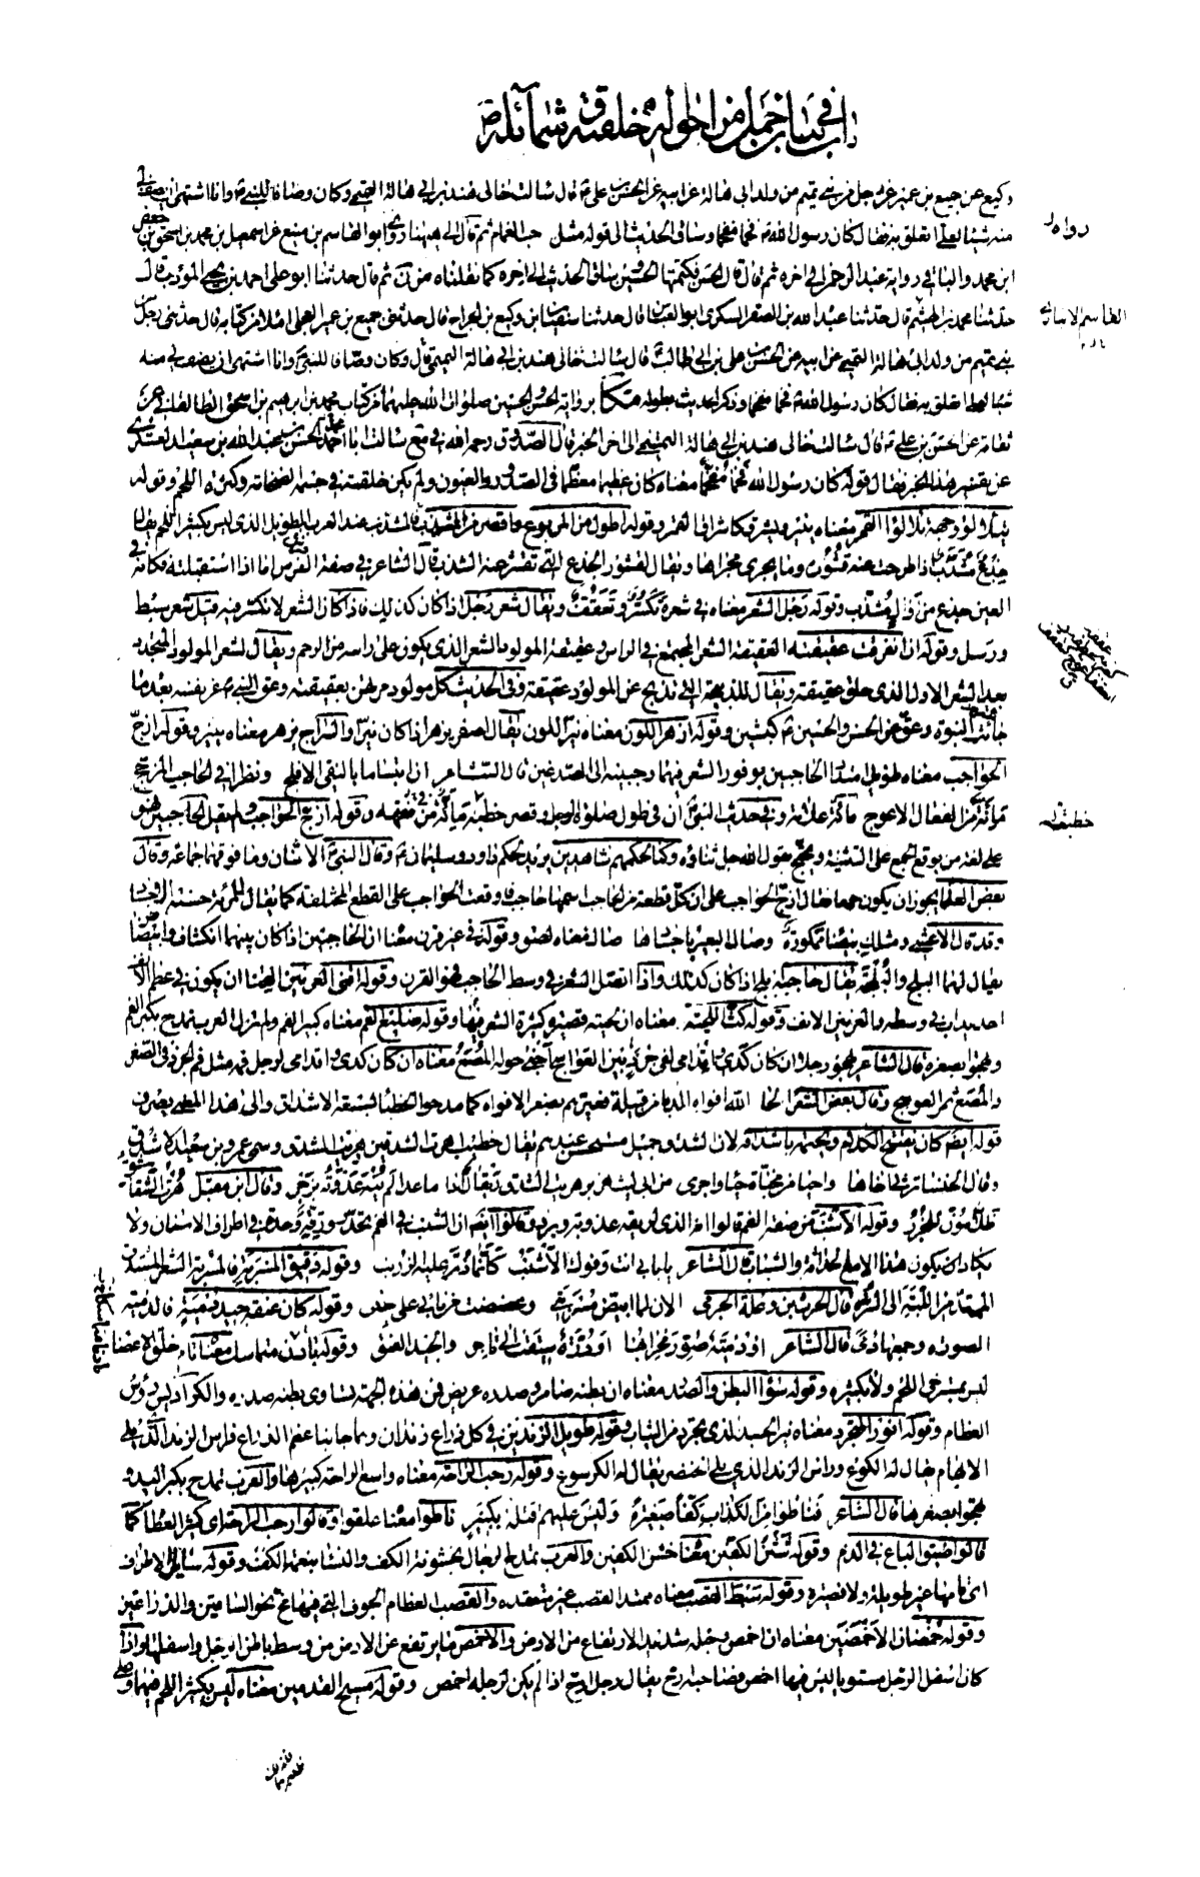 باب في بيان جمل من احواله و خلقته و شمائله ص
وكيع عن جميع بن عمير عن رجل من بني تميم من ولد ابي هالة عن ابيه عن الحسن بن علي ع قال سالت خالي هند بن ابي هالة التميمي وكان وصافا للنبي ص وانا اشتهي ان يصف لي
منه شيئا لعلي اتعلق به فقال كان رسول الله ص فخما مفخما وساق الحديث الى قوله مثل حب الغمام ثم قال الى هيهنا رواه ابو القاسم بن منيع عن اسمعيل بن محمد بن اسحق بن جعفر
رواه
ابن محمد والباقي رواية عبد الرحمن الى اخره ثم قال قال الحسن فكتمتها الحسين وساق الحديث الى اخره كما نقلناه من ن ثم قال حدثنا ابو علي احمد بن يحيى المؤدب قال
حدثنا محمد بن الهيثم قال حدثنا عبد الله بن الصقر السكري ابو العباس قال حدثنا سفيان بن وكيع بن الجراح قال حدثني جميع بن عمير العجلي املاء من كتابه قال حدثني رجل من
بني تميم من ولد ابي هالة التميمي عن ابيه عن الحسن بن علي بن ابي طالب ع قال سالت خالي هند بن ابي هالة التميمي قال وكان وصافا للنبي ص وانا اشتهي ان يصف لي منه
شيئا لعلي اتعلق به فقال كان رسول الله ص فخما مفخما وذكر الحديث بطوله مكا برواية الحسن والحسين صلوات الله عليهما من كتاب محمد بن ابرهيم بن اسحق الطالقاني عن
ثقاته عن الحسن بن علي ع قال سالت خالي هند بن ابي هالة التميمي الى اخر الخبر قال الصدوق رحمه الله في مع سالت ابا احمد الحسن بن عبد الله بن سعيد العسكري
عن تفسير هذا الخبر فقال قوله كان رسول الله ص فخما مفخما معناه كان عظيما معظما في الصدور والعيون ولم يكن خلقته في جسمه الضخامة وكثرة اللحم وقوله
يتلألؤ وجهه تلألؤ القمر معناه ينير ويشرق كاشراق القمر وقوله اطول من المربوع واقصر من المشذب فالمشذب عند العرب الطويل الذي ليس بكثير اللحم يقال
جذع مشذب اذا طرحت عنه قشوره وما يجري مجراها ويقال لقشور الجذع التي تقشر عنه الشذب قال الشاعر في صفة الفرس اما اذا استقبلته فكانه في
العين جذع من اوال مشذب وقوله رجل الشعر معناه في شعره تكسر وتعقف ويقال شعر رجل اذا كان كذلك فاذا كان الشعر لا تكسر فيه قيل شعر سبط
ورسل وقوله ان تفرقت عقيقته العقيقة الشعر المجتمع في الراس وعقيقة المولود الشعر الذي يكون على راسه من الرحم ويقال لشعر المولود المتجدد
بعد الشعر الاول الذي حلق عقيقة ويقال للذبيحة التي تذبح عن المولود عقيقة وفي الحديث كل مولود مرتهن بعقيقته وعق النبي ص عن نفسه بعد ما
جائته النبوة وعق عن الحسن والحسين ع كبشين وقوله ازهر اللون معناه نير اللون يقال اصفر يزهر اذا كان نيرا والسراج يزهر معناه ينير وقوله ازج
الحواجب معناه طويل امتداد الحاجبين بوفور الشعر فيهما وجبينه الى الصدغين قال الشاعر ان ابتساما بالنقي الافلج ونظرا في الحاجب المزجج
مئنة من الفعال الاعوج مئنة علامة وفي حديث النبي ص ان في طول صلوة الرجل وقصر خطبته مئنة من فقهه وقوله ازج الحواجب ولم يقل الحاجبين فهو
خطبته
على لغة من يوقع الجمع على التثنية ويحتج بقول الله جل ثناؤه وكنا لحكمهم شاهدين يريد لحكم داود وسليمان ع وقال النبي ص الاثنان وما فوقهما جماعة وقال
بعض العلماء يجوز ان يكون جمعا فقال ازج الحواجب على ان كل قطعة من الحاجب اسمها حاجب فاوقعت الحواجب على القطع المختلفة كما يقال للمراة حسنة الاجساد
وقد قال الاعشى ومثلك بيضاء ممكورة وصاك العبير باجسادها صاك معناه لصق وقوله في غير قرن معناه ان الحاجبين اذا كان بينهما انكشاف وابيضاض
يقال لهما البلج والبلجة يقال حاجبه ابلج اذا كان كذلك واذا اتصل الشعر في وسط الحاجب فهو القرن وقوله اقنى العرنين القنا ان يكون في عظم الانف
احديداب في وسطه والعرنين الانف وقوله كث اللحية معناه ان لحيته قصيرة كثيرة الشعر فيها وقوله ضليع الفم معناه كبير الفم ولم تزل العرب تمدح بكبر الفم
وتهجو بصغره قال الشاعر يهجو رجلا ان كان كدي واقدامي لفي جرذ بين العواسج اجنى حوله المصع معناه ان كان كدي واقدامي لرجل فمه مثل فم الجرذ في الصغر
والمصع ثمر العوسج وقال بعض الشعراء لحا الله افواه الدبا من قبيلة فعيرهم بصغر الافواه كما مدحوا الخطباء بسعة الاشداق والى هذا المعنى يصرف
قوله ايضا كان يفتتح الكلام ويختمه باشداقه لان الشدق جميل مستحسن عندهم يقال خطيب اهرت الشدقين وهريت الشدق وسمي عمرو بن سعيد الاشدق
نظل هؤلاء الجزر وقوله الاشنب من صفة الفم قالوا انه الذي لريقه عذوبة وبرد وقالوا ايضا ان الشنب في الفم تحدد ورقة وحدة في اطراف الاسنان ولا
يكاد يكون هذا الا مع الحداثة والشباب قال الشاعر يا بابي انت وفوك الاشنب كانما ذر عليه الزرنب وقوله دقيق المسربة فالمسربة الشعر المستدق
الممتد من اللبة الى السرة قال الحرث بن وعلة الجرمي الان لما ابيض مسربتي وعضضت من نابي على جذم وقوله كان عنقه جيد دمية فالدمية
الصورة وجمعها دمى قال الشاعر او دمية صور محرابها او درة سيقت الى تاجر والجيد العنق وقوله بادنا متماسكا معناه تام خلق الاعضاء
ليس بمسترخي اللحم ولا بكثيره وقوله سواء البطن والصدر معناه ان بطنه ضامر وصدره عريض فمن هذه الجهة تساوى بطنه صدره والكراديس رؤس
العظام وقوله انور المتجرد معناه نير الجسد الذي تجرد من الثياب وقوله طويل الزندين في كل ذراع زندان وهما جانبا عظم الذراع فراس الزند الذي يلي
الابهام يقال له الكوع وراس الزند الذي يلي الخنصر يقال له الكرسوع وقوله رحب الراحة معناه واسع الراحة كبيرها والعرب تمدح بكبر اليد و
تهجو بصغرها قال الشاعر فناطوا من الكذاب كفا صغيرة وليس عليهم قتله بكبير ناطوا معناه علقوا وقالوا رحب الراحة اي كثير العطاء كما
قالوا ضيق الباع في الذم وقوله شثن الكفين معناه خشن الكفين والعرب تمدح الرجال بخشونة الكف والنساء بنعمة الكف وقوله سائل الاطراف
اي تامها غير طويلة ولا قصيرة وقوله سبط القصب معناه ممتد القصب غير منعقدة والقصب العظام الجوف التي فيها مخ نحو الساقين والذراعين
وقوله خمصان الاخمصين معناه ان اخمص رجله شديد الارتفاع من الارض والاخمص ما يرتفع عن الارض من وسط باطن الرجل واسفلها واذا
كان اسفل الرجل مستويا ليس فيها اخمص فصاحبه ارح يقال رجل ارح اذا لم يكن لرجله اخمص وقوله مسيح القدمين معناه ليس بكثير اللحم فيهما وعلى